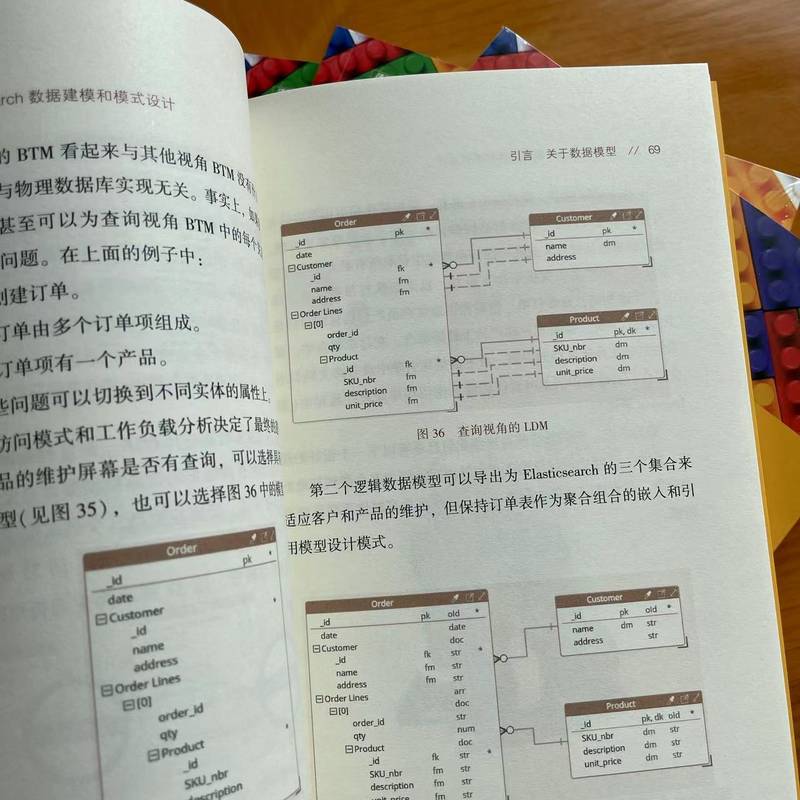 arch 数据建模和模式设计
的 BTM 看起来与其他视角 BTM 没有
与物理数据库实现无关。事实上，如
甚至可以为查询视角 BTM 中的每个
问题。在上面的例子中：
创建订单。
订单由多个订单项组成。
订单项有一个产品。
些问题可以切换到不同实体的属性上。
访问模式和工作负载分析决定了最终的
品的维护屏幕是否有查询，可以选择
型（见图 35），也可以选择图 36 中的
Order
_id pk *
date
Customer
_id
name
address
Order Lines
[0]
order_id
qty
Product
_id
SKU_nbr
description
引言 关于数据模型 // 69
Order
_id pk *
date
Customer
_id fk *
name fm
address fm
Order Lines
[0]
order_id
qty
Product
_id fk *
SKU_nbr fm
description fm
unit_price fm
Customer
_id pk *
name dm
address
Product
_id pk, dk *
SKU_nbr dm
description dm
unit_price dm
图 36 查询视角的 LDM
第二个逻辑数据模型可以导出为 Elasticsearch 的三个集合来
适应客户和产品的维护，但保持订单表作为聚合组合的嵌入和引
用模型设计模式。
Order
_id pk oId *
date date
Customer doc
_id fk str *
name fm str
address fm str
Order Lines arr
[0] doc
order_id str
qty num
Product doc
_id fk str *
SKU_nbr fm str
description fm str
unit_price fm str
Customer
_id pk oId *
name dm str
address str
Product
_id pk, dk oId *
SKU_nbr dm str
description dm str
unit_price dm str